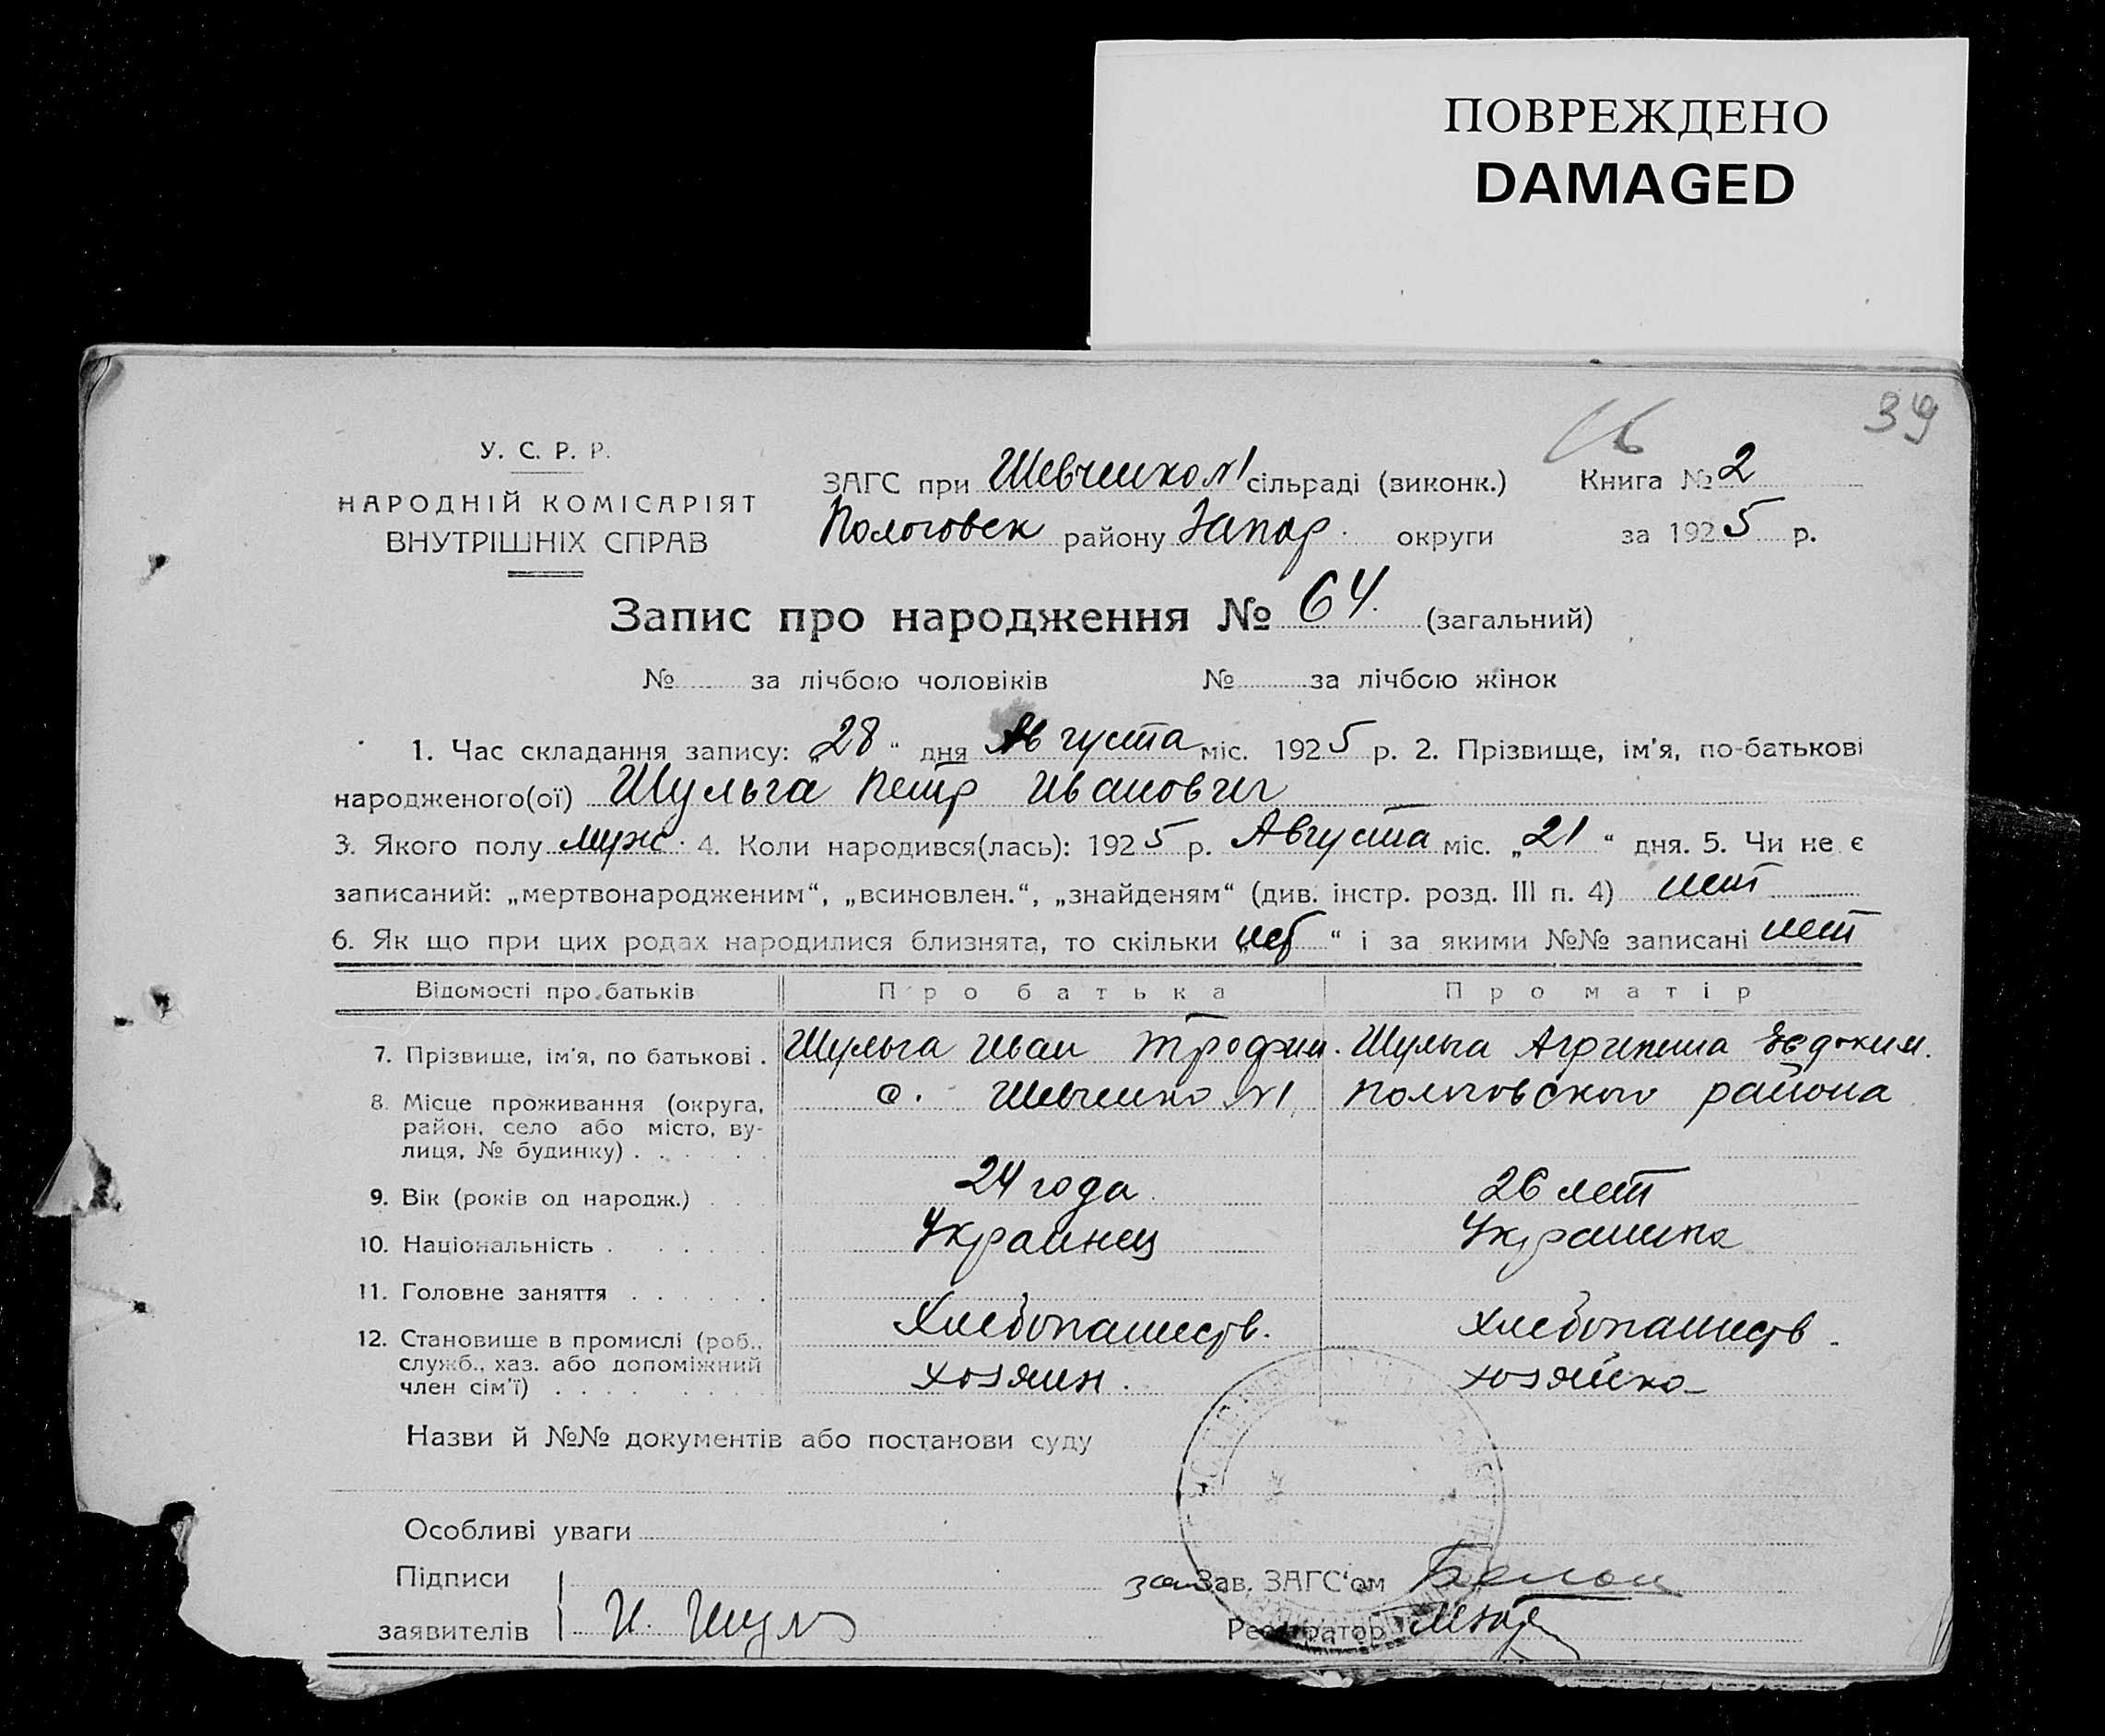 ПОВРЕЖДЕНО
DAMAGED
39
У. С. Р. Р.
НАРОДНІЙ КОМІСАРІЯТ
ВНУТРІШНІХ СПРАВ
ЗАГС при Шевченко №1 сільраді (виконк.) Книга № 2
Пологовск району Запор. округи за 1925 р.
Запис про народження № 64. (загальний)
№ за лічбою чоловіків № за лічбою жінок
1. Час складання запису: „28“ дня Августа міс. 1925 р. 2. Прізвище, ім'я, по-батькові
народженого(ої) Шульга Петр Иванович
3. Якого полу муж. 4. Коли народився(лась): 1925 р. Августа міс. „21“ дня. 5. Чи не є
записаний: „мертвонародженим“, „всиновлен.“, „знайденям“ (див. інстр. розд. III п. 4) нет
6. Як що при цих родах народилися близнята, то скільки „нет“ і за якими №№ записані нет
Відомості про батьків Про батька Про матір
7. Прізвище, ім'я, по батькові . Шульга Иван Трофим. Шульга Агрипина Евдоким.
8. Місце проживання (округа, с. Шевченко №1 Пологовского района
район, село або місто, ву-
лиця, № будинку) . . . . . .
9. Вік (років од народж.) . . . 24 года 26 лет
10. Національність . . . . . . Украинец Украинка
11. Головне заняття . . . . . . Хлебопашеств. Хлебопашеств.
12. Становище в промислі (роб.,
служб., хаз. або допоміжний хозяин. хозяйка
член сім'ї) . . . . . . . .
Назви й №№ документів або постанови суду
Особливі уваги
Підписи Зав. ЗАГС'ом
заявителів И. Шул Реєстратор